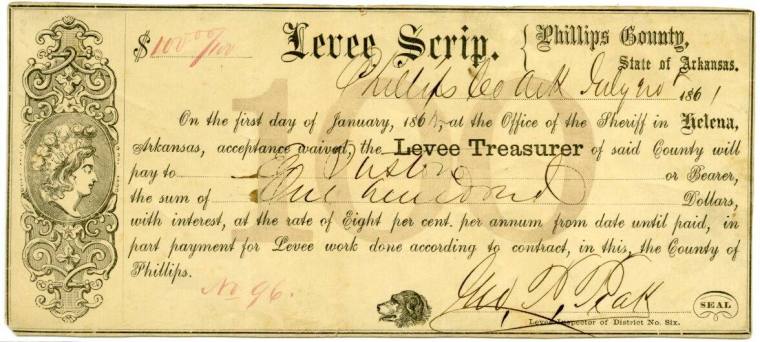 $ 100 00/100 Levee Scrip. { Phillips County,
State of Arkansas.
Phillips Co Ark July 20 1861
On the first day of January, 186 , at the Office of the Sheriff in Helena,
Arkansas, acceptance waived, the Levee Treasurer of said County will
pay to Easton or Bearer,
the sum of One hundred Dollars,
with interest, at the rate of Eight per cent. per annum from date until paid, in
part payment for Levee work done according to contract, in this, the County of
Phillips.
No 96.
Geo, N, Peak
SEAL
Levee Inspector of District No. Six.
100